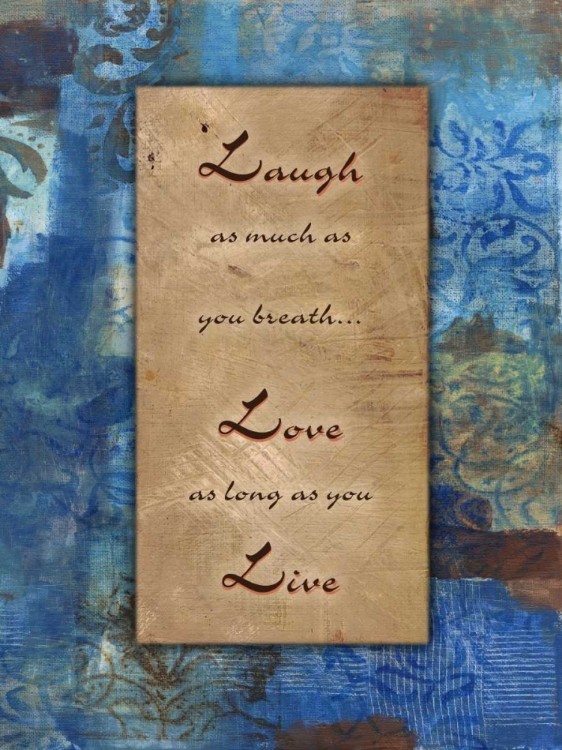 Laugh
as much as
you breath...
Love
as long as you
Live